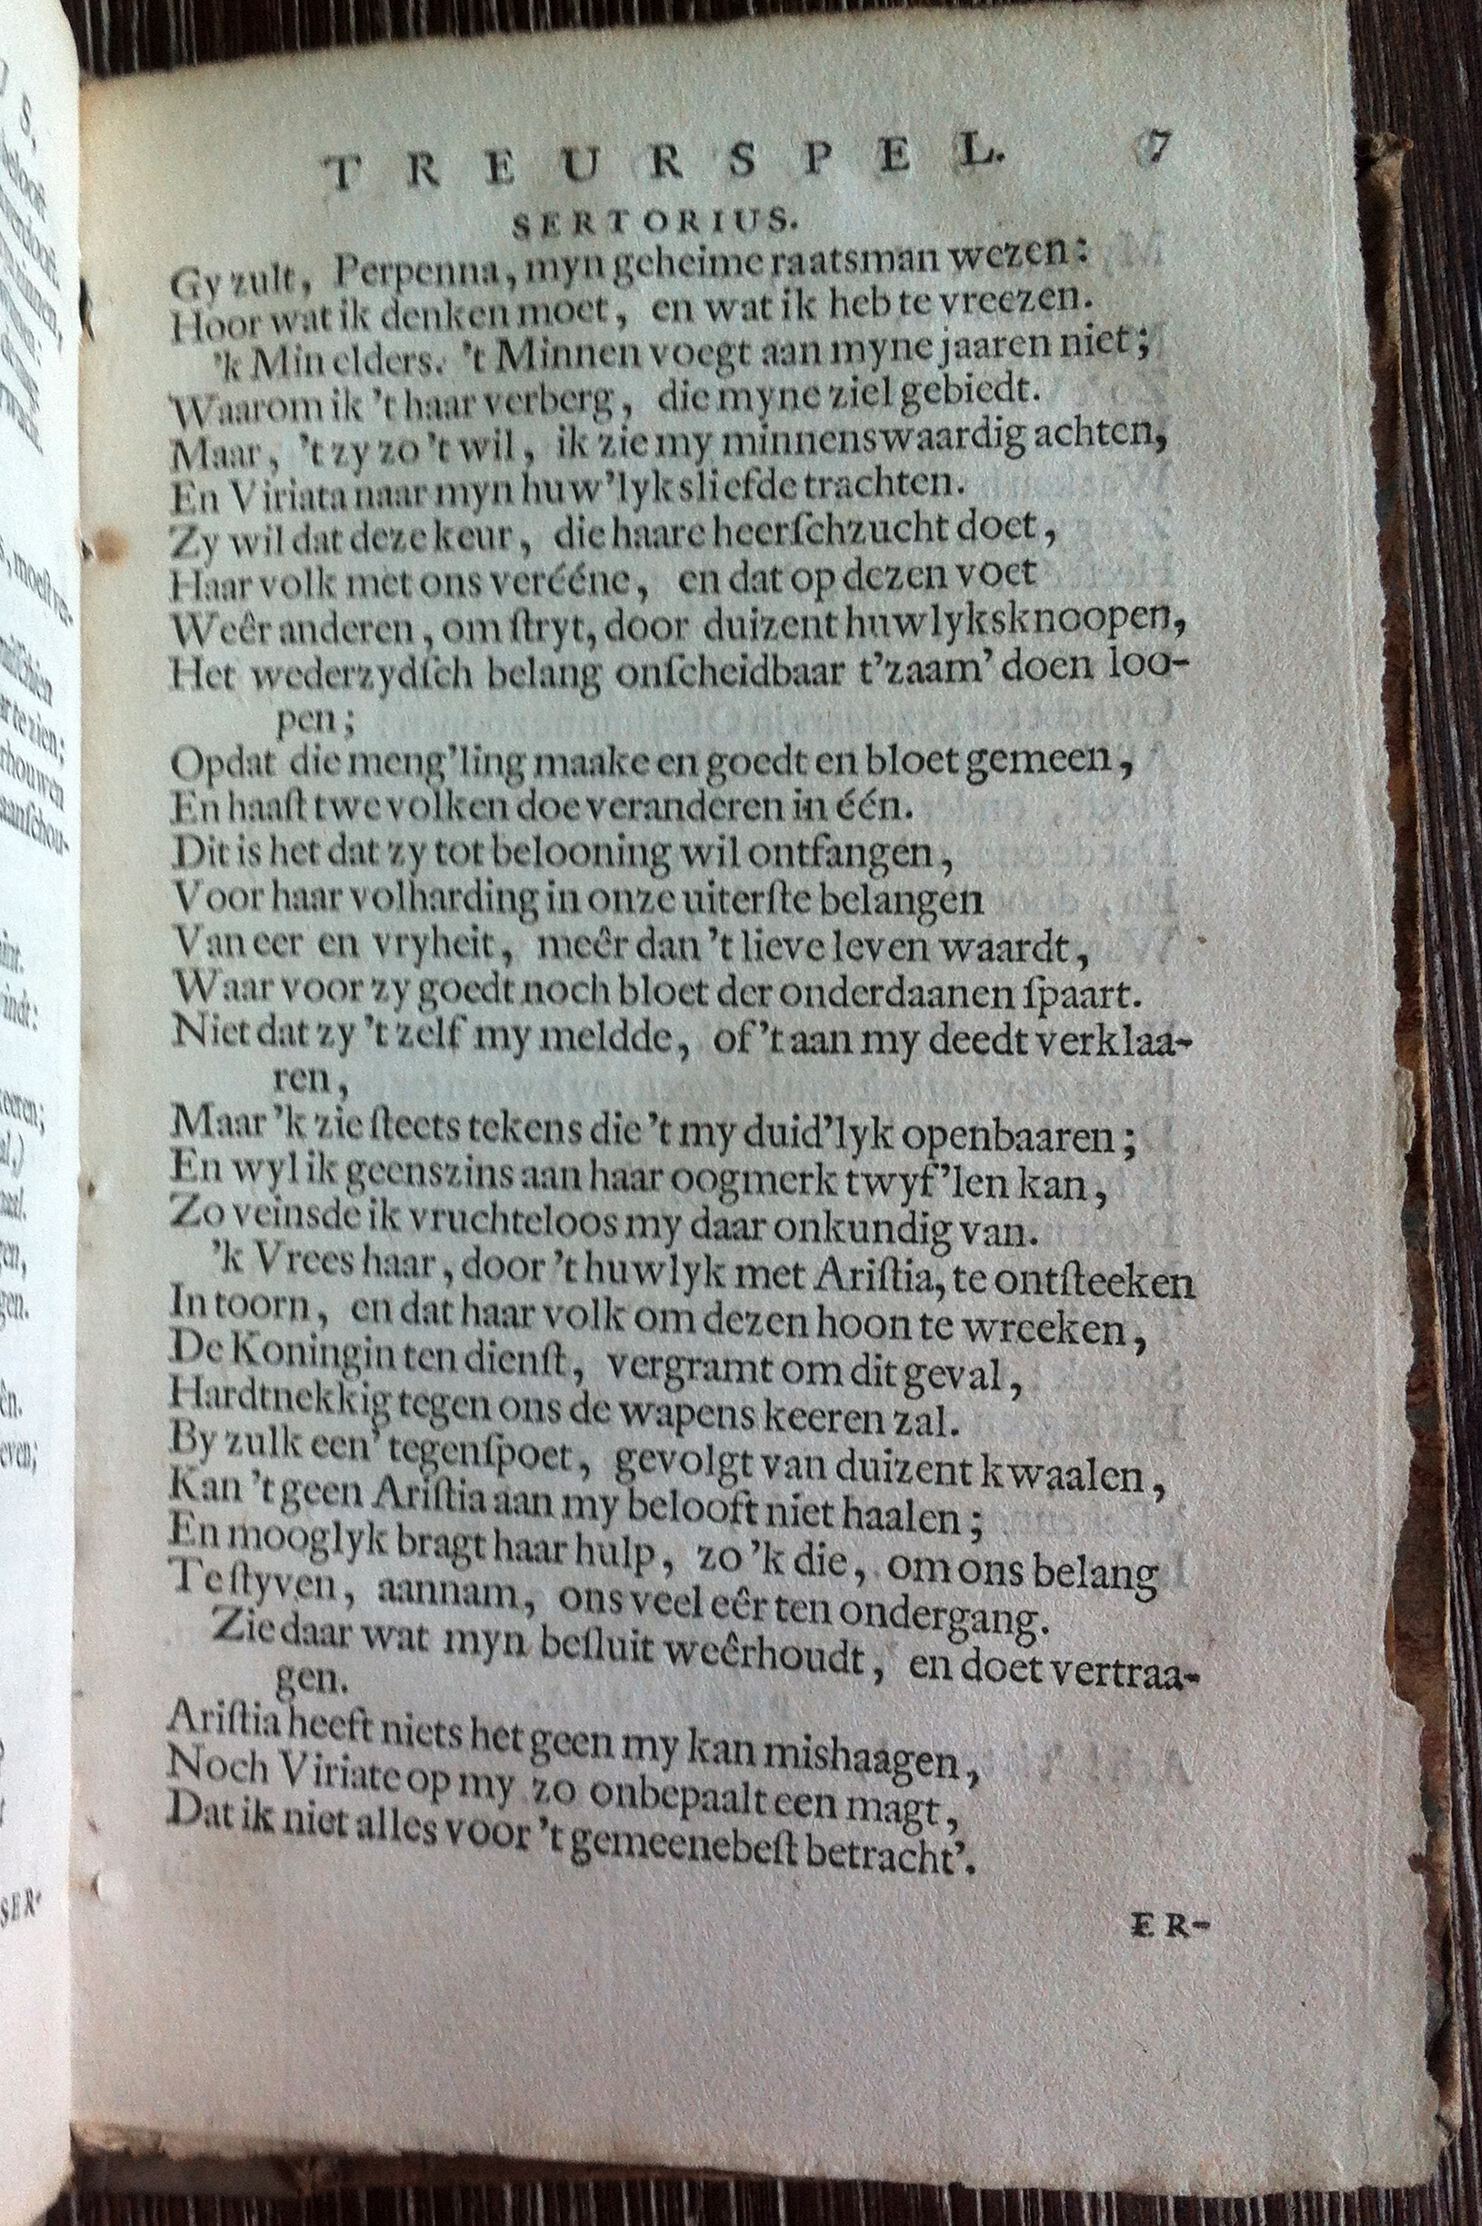 TREURSPEL. 7
SERTORIUS.
Gy zult, Perpenna, myn geheime raatsman wezen:
Hoor wat ik denken moet, en wat ik heb te vreezen.
'k Min elders. 't Minnen voegt aan myne jaaren niet;
Waarom ik 't haar verberg, die myne ziel gebiedt.
Maar, 't zy zo 't wil, ik zie my minnenswaardig achten,
En Viriata naar myn huw'lyksliefde trachten.
Zy wil dat deze keur, die haare heerſchzucht doet,
Haar volk met ons verééne, en dat op dezen voet
Weêr anderen, om ſtryt, door duizent huwlyksknoopen,
Het wederzydſch belang onſcheidbaar t'zaam' doen loo-
pen;
Opdat die meng'ling maake en goedt en bloet gemeen,
En haaſt twe volken doe veranderen in één.
Dit is het dat zy tot belooning wil ontfangen,
Voor haar volharding in onze uiterſte belangen
Van eer en vryheit, meêr dan 't lieve leven waardt,
Waar voor zy goedt noch bloet der onderdaanen ſpaart.
Niet dat zy 't zelf my meldde, of 't aan my deedt verklaa-
ren,
Maar 'k zie ſteets tekens die 't my duid'lyk openbaaren;
En wyl ik geenszins aan haar oogmerk twyf'len kan,
Zo veinsde ik vruchteloos my daar onkundig van.
'k Vrees haar, door 't huwlyk met Ariſtia, te ontſteeken
In toorn, en dat haar volk om dezen hoon te wreeken,
De Koningin ten dienſt, vergramt om dit geval,
Hardtnekkig tegen ons de wapens keeren zal.
By zulk een' tegenſpoet, gevolgt van duizent kwaalen,
Kan 't geen Ariſtia aan my belooft niet haalen;
En mooglyk bragt haar hulp, zo 'k die, om ons belang
Te ſtyven, aannam, ons veel eêr ten ondergang.
Zie daar wat myn beſluit weêrhoudt, en doet vertraa-
gen.
Ariſtia heeft niets het geen my kan mishaagen,
Noch Viriate op my zo onbepaalt een magt,
Dat ik niet alles voor 't gemeenebeſt betracht'.
ER-